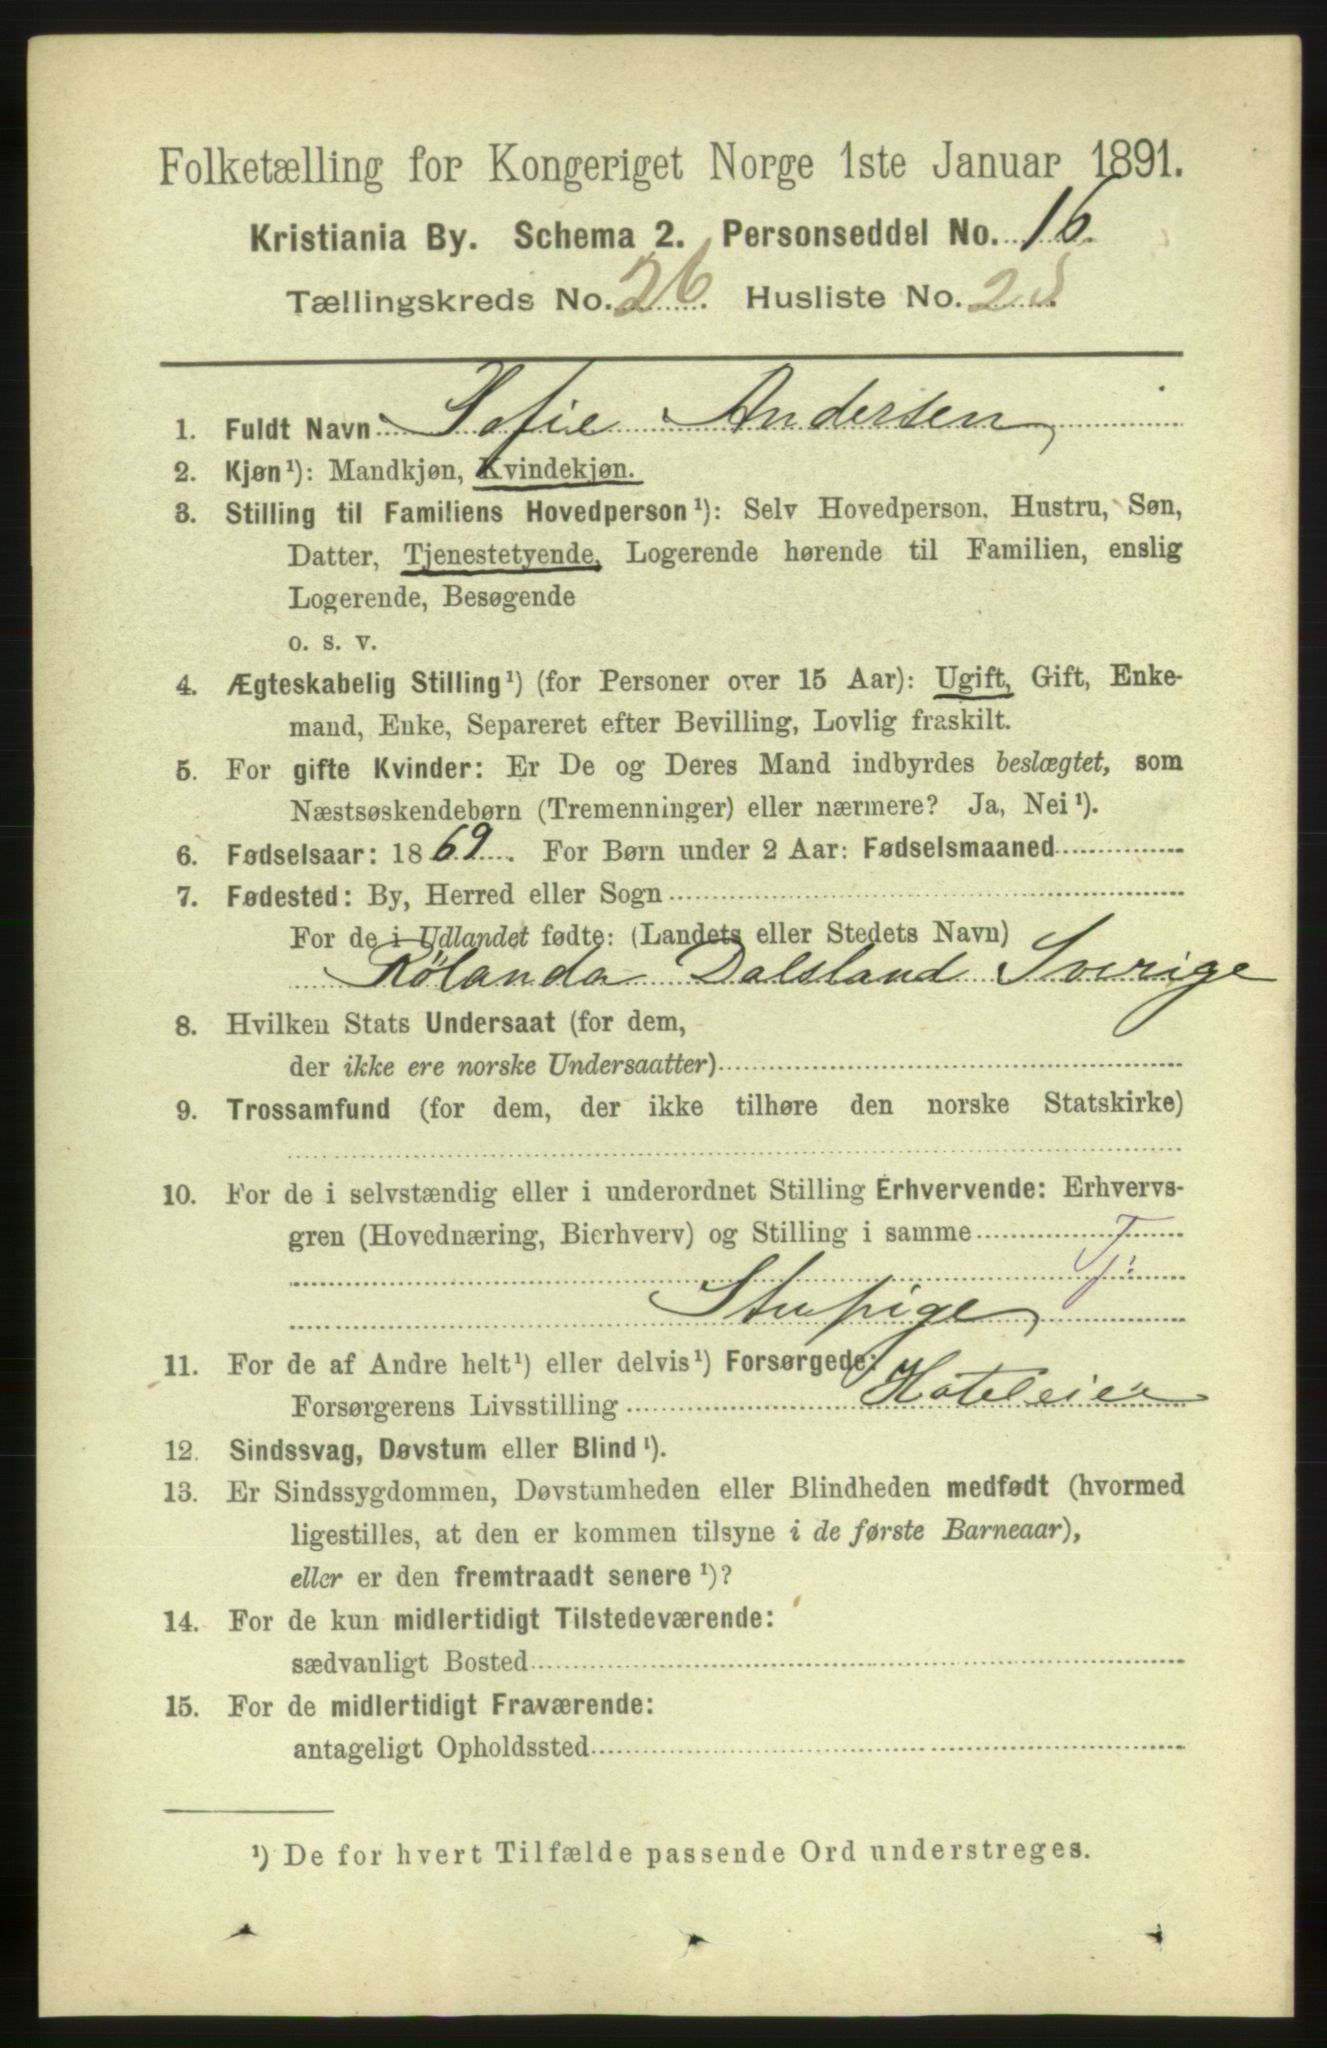 Folketælling for Kongeriget Norge 1ste Januar 1891.
Kristiania By. Schema 2. Personseddel No. 16.
Tællingskreds No. 26. Husliste No. 25.
1. Fuldt Navn Sofie Andersen
2. Kjøn¹): Mandkjøn, Kvindekjøn.
3. Stilling til Familiens Hovedperson¹): Selv Hovedperson, Hustru, Søn,
Datter, Tjenestetyende, Logerende hørende til Familien, enslig
Logerende, Besøgende
o. s. v.
4. Ægteskabelig Stilling¹) (for Personer over 15 Aar): Ugift, Gift, Enke-
mand, Enke, Separeret efter Bevilling, Lovlig fraskilt.
5. For gifte Kvinder: Er De og Deres Mand indbyrdes beslægtet, som
Næstsøskendebørn (Tremenninger) eller nærmere? Ja, Nei¹).
6. Fødselsaar: 1869. For Børn under 2 Aar: Fødselsmaaned
7. Fødested: By, Herred eller Sogn
For de i Udlandet fødte: (Landets eller Stedets Navn)
Rølanda Dalsland Sverige
8. Hvilken Stats Undersaat (for dem,
der ikke ere norske Undersaatter)
9. Trossamfund (for dem, der ikke tilhøre den norske Statskirke)
10. For de i selvstændig eller i underordnet Stilling Erhvervende: Erhvervs-
gren (Hovednæring, Bierhverv) og Stilling i samme
Tj:
Stupige
11. For de af Andre helt¹) eller delvis¹) Forsørgede:
Forsørgerens Livsstilling Hoteleier
12. Sindssvag, Døvstum eller Blind¹).
13. Er Sindssygdommen, Døvstumheden eller Blindheden medfødt (hvormed
ligestilles, at den er kommen tilsyne i de første Barneaar),
eller er den fremtraadt senere¹)?
14. For de kun midlertidigt Tilstedeværende:
sædvanligt Bosted
15. For de midlertidigt Fraværende:
antageligt Opholdssted
¹) De for hvert Tilfælde passende Ord understreges.